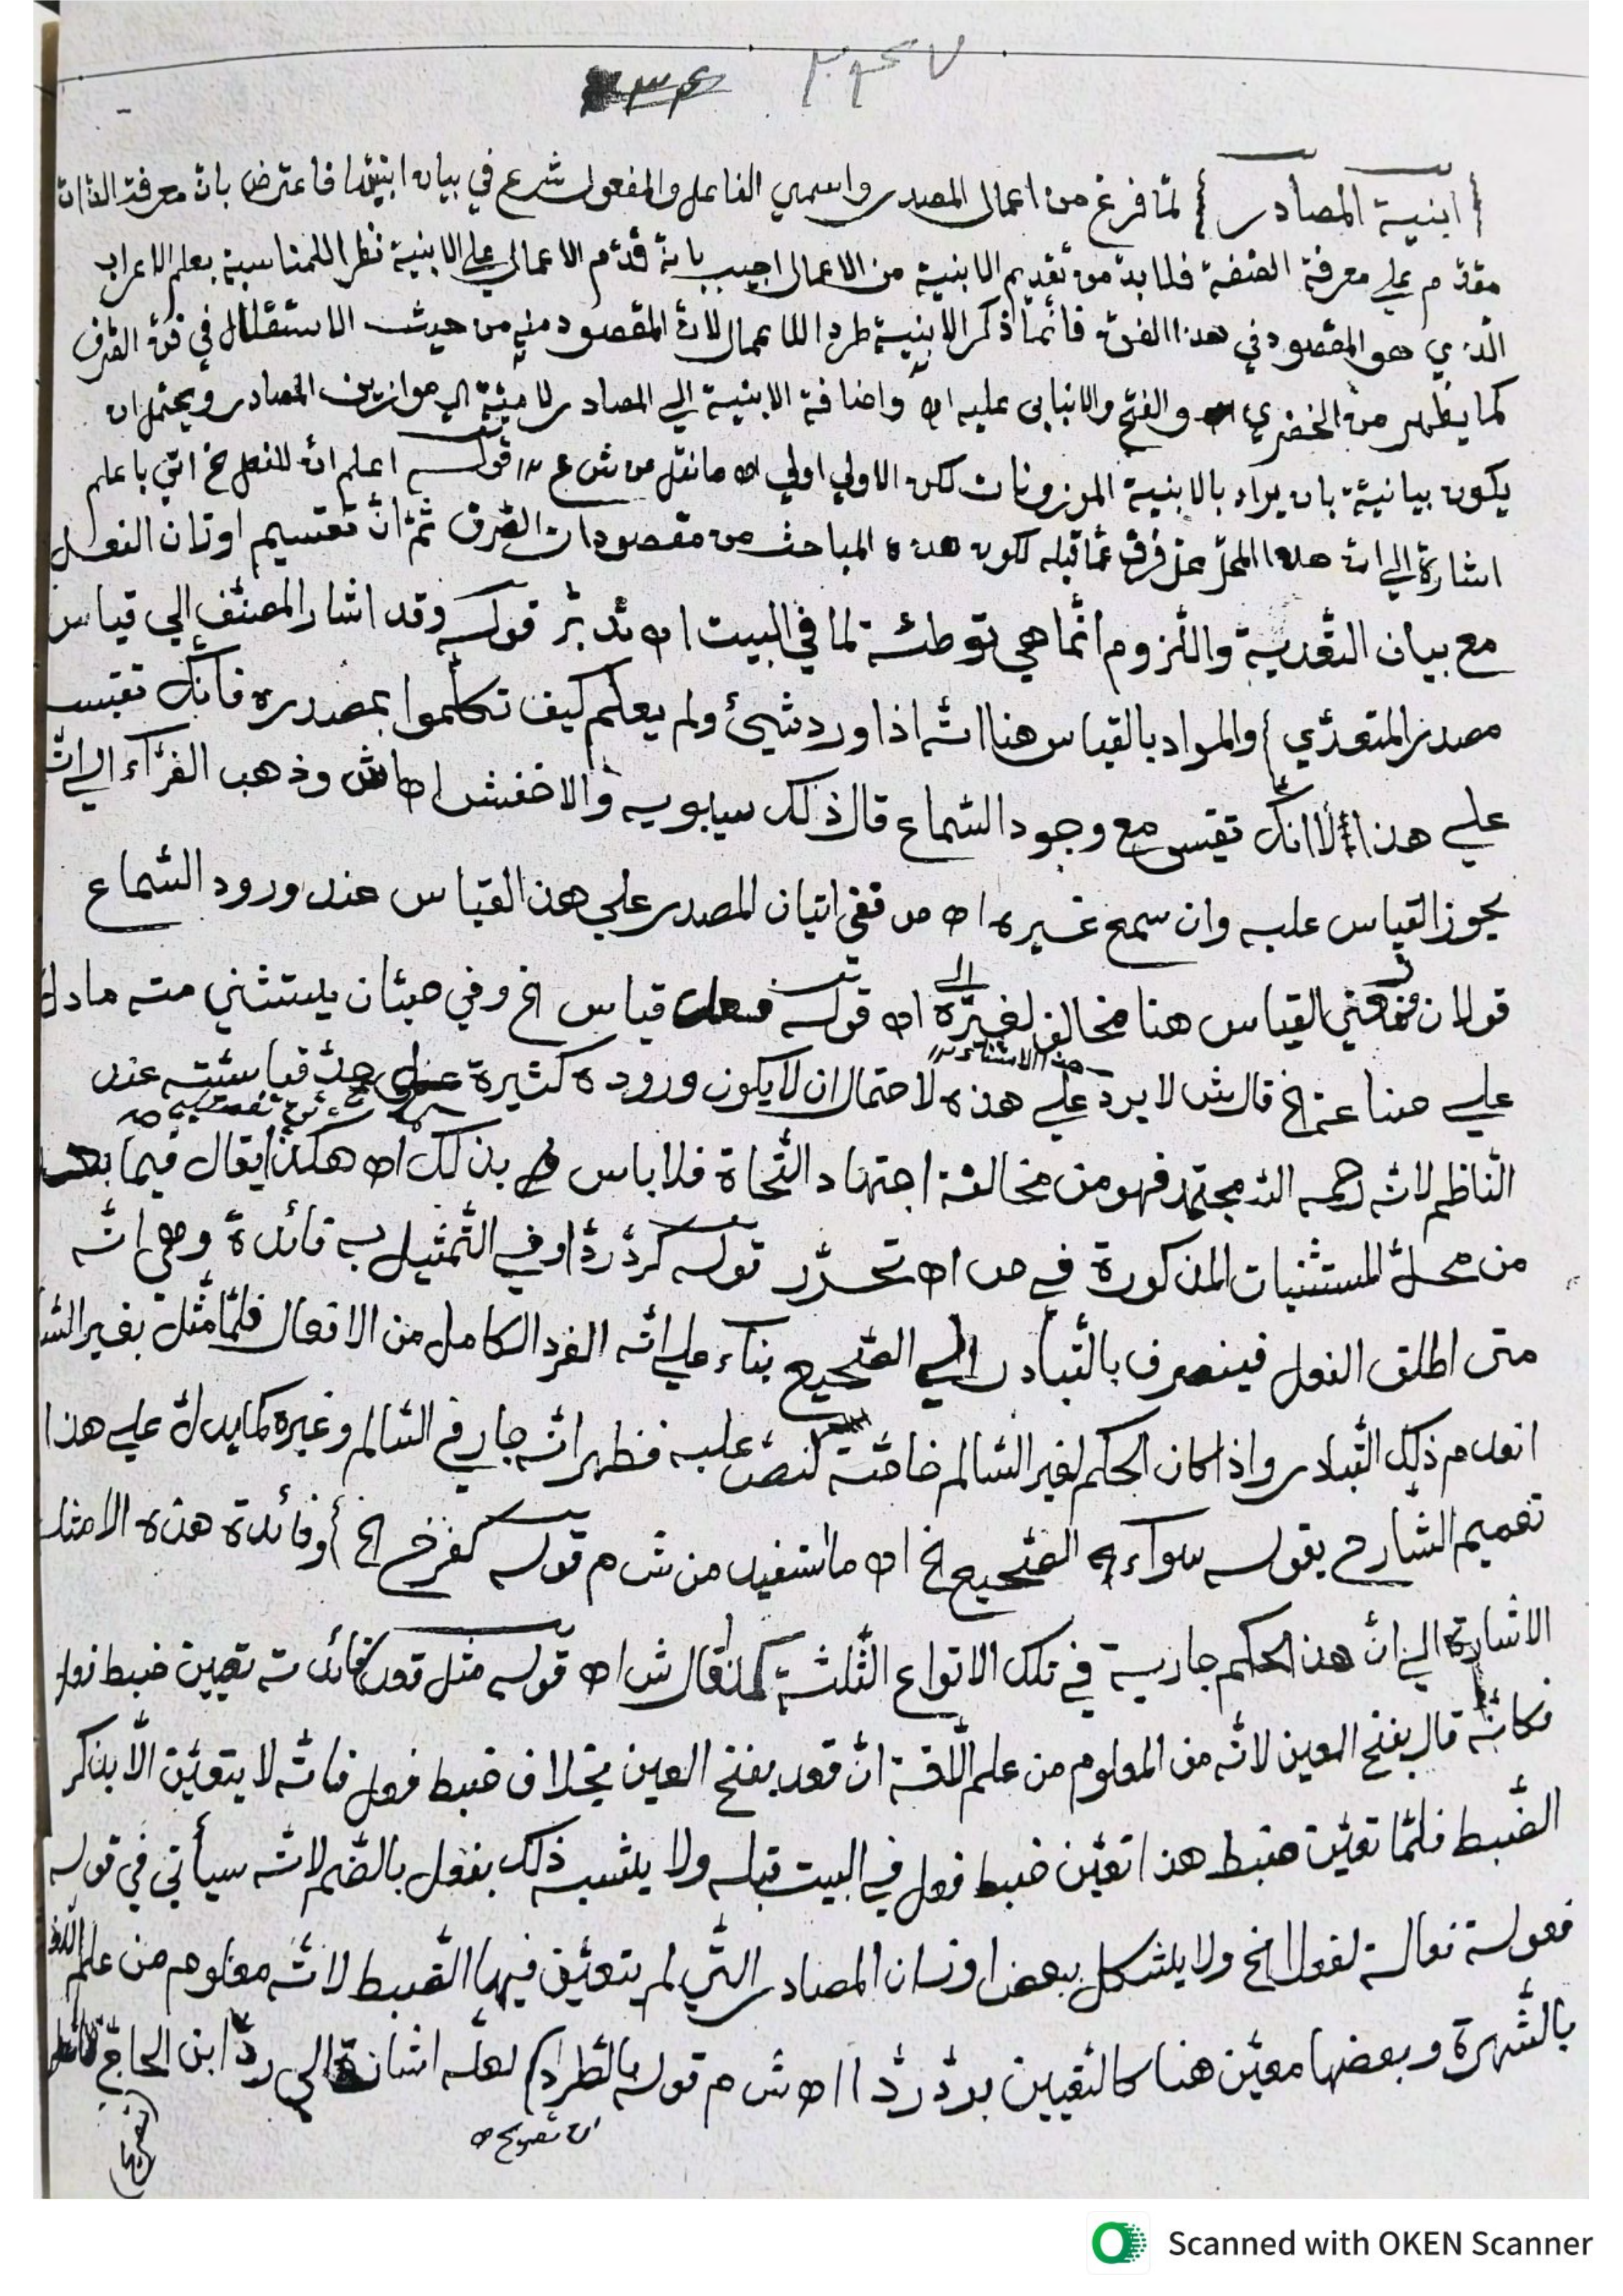 ٢٣٤٧ ٣٤
{ابنية المصادر} لمّا فرغ من اعمال المصدر واسمي الفاعل والمفعول شرع في بيان ابنيتها فاعترض بان معرفة الذات
مقدّم علي معرفة الصّفة فلا بدّ من تقديم الابنية من الاعمال اجيب بانّه قدّم الاعمال علي الابنية نظرا للمناسبة بعلم الاعراب
الّذي هو المقصود في هذا الفنّ فانّما ذكر الابنية طردا للاعمال لانّ المقصود منه من حيث الاستقلال في فنّ الصّرف
كما يظهر من الخضري والفتح والانبابي عليه اه واضافة الابنية الي المصادر لاميّة اي موازين المصادر ويحتمل ان
يكون بيانيّة بان يراد بالابنية الموزونات لكن الاولي اولي اه ما نقل من ش ع ١٢ قوله اعلم انّ للفعل الخ اتي باعلم
اشارة الي انّ هذا المحلّ محلّ فرق عمّا قبله لكون هذه المباحث من مقصودات الصّرف ثمّ انّ تقسيم اوزان الفعل
مع بيان التّعدية واللّزوم انّما هي توطئة لما في البيت اه تدبّر قوله وقد اشار المصنّف الي قياس
مصدر المتعدّي} والمراد بالقياس هنا انّه اذا ورد شيئ ولم يعلم كيف تكلّموا بمصدره فانّك تقيسه
علي هذا لا انّك تقيس مع وجود السّماع قال ذلك سيبويه والاخفش اه اش وذهب الفرّاء الي انّه
يجوز القياس عليه وان سمع غيره اه ص ففي اتيان المصدر علي هذا القياس عند ورود السّماع
قولان فمعني القياس هنا مخالف لغيره اه قوله فعل قياس الخ وفي صبّان يستثني منه ما دلّ
هذا الاستثناء ١٢
علي صناعة الخ قال ش لا يردّ علي هذه لاحتمال ان لا يكون وروده كثيرة علي حدّ قياسيّته عند
النّاظم لانّه رحمه الله مجتهد فهو من مخالفة اجتهاد النّحاة فلا باس بذلك اه هكذا يقال فيما بعد
من محلّ المستثنيات المذكورة في ص اه تحرّر قوله كردّ ردّا وفي التّمثيل به فائدة وهي انّه
متى اطلق الفعل فينصرف بالتّبادر الي الصّحيح بناء علي انّه الفرد الكامل من الافعال فلمّا مثّل بغير السّا
انعدم ذلك التّبادر واذا كان الحكم لغير السّالم خاصّة لنصّ عليه فظهر انّه جار في السّالم وغيره كما يدلّ علي هذا
تعميم الشّارح بقوله سواء الصّحيح الخ اه ما استفيد من ش م قوله كفرح الخ} وفائدة هذه الامثلة
الاشارة الي انّ هذا الحكم جارية في تلك الانواع الثّلثة كما قال ش اه قوله مثل قعد} فائدته تعيين ضبط فعل
فكانّه قال بفتح العين لانّه من المعلوم من علم اللّغة انّ قعد بفتح العين بخلاف ضبط فعل فانّه لا يتعيّن الّا بذكر
الضّبط فلمّا تعيّن ضبط هذا تعيّن ضبط فعل في البيت قبله ولا يلتبس ذلك بفعل بالضّم لانّه سيأتي في قوله
فعولة فعالة لفعلا الخ ولا يشكل بعض اوزان المصادر الّتي لم يتعيّن فيها الضّبط لانّه معلوم من علم اللّغة
بالشّهرة وبعضها معيّن هنا كالتعيين بردّ ردّا اه ش م قوله باطّراد} لعلّه اشارة الي ردّ ابن الحاجّ
Scanned with OKEN Scanner